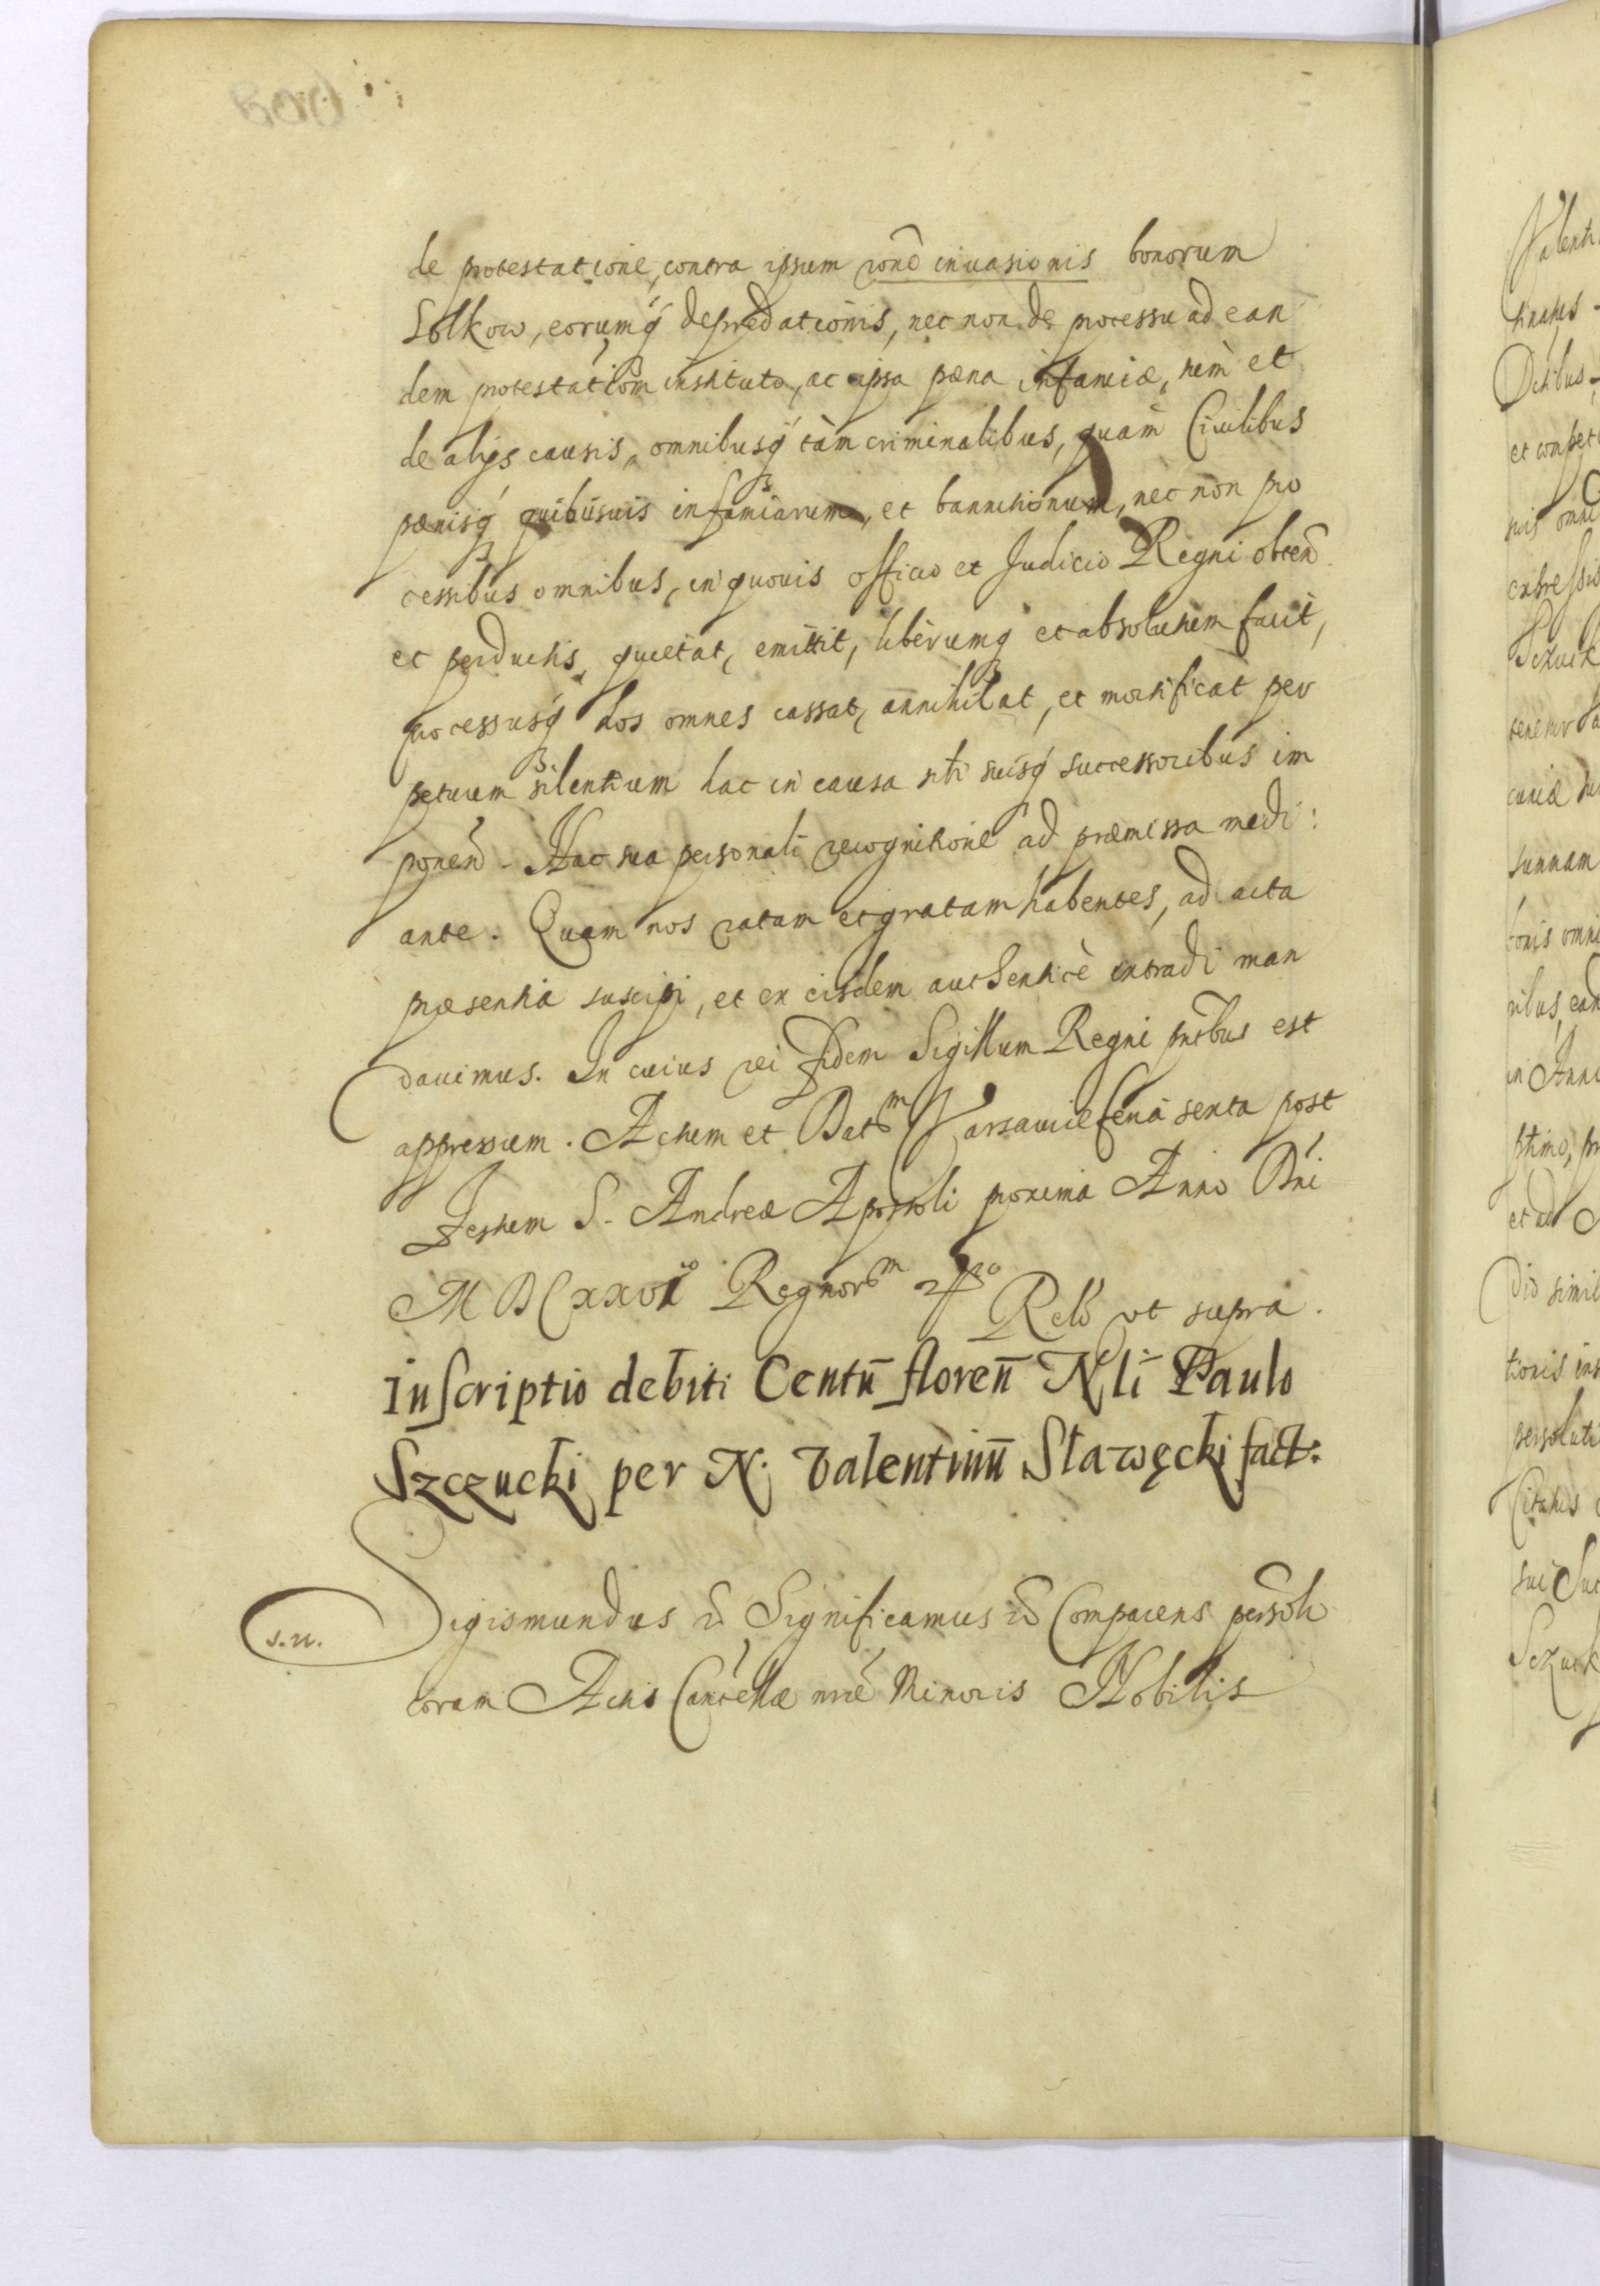 de protestatione, contra ipsum rōne inuasionis bonorum
Lolkow, eorumq́ depredationis, nec non de processu ad ean
dem protestatiom̄ instituto, ac ipsa pæna infamiæ, item et
de alijs causis, omnibusq́ tàm criminalibus, quàm Ciuilibus
pænisq́ quibusuis infamiarum, et bannitionum, nec non pro
cessibus omnibus, in quouis officio et Judicio Regni obten̄
et perductis, quietat, emittit, liberumq́ et absolutum facit,
processusq́ hos omnes cassat, annihilat, et mortificat per
petuum silentium hac in causa sibi suisq́ successoribus im
ponen̄. Hac sua personali recognitione ad præmissa medi:
ante. Quam nos ratam et gratam habentes, ad acta
præsentia suscipi, et ex eisdem authenticè extradi man
dauimus. In cuius rei fidem Sigillum Regni pn̄tibus est
appressum. Actum et Datm Varsauiæ feria sexta post
Festum S. Andreæ Apostoli proxima Anno Dn̄i
MDCXXVI Regnorm
Relō vt supra.
Inscriptio debiti Centū floreñ Nli Paulo
Szczucki per N. Valentinū Sławęcki fact:
Sigismundus Significamus Comparens persōlr
s.n.
coram Actis Cancellæ nr̄æ Minoris Nobilis
Valenti
Sczuck
summam
Sczuck